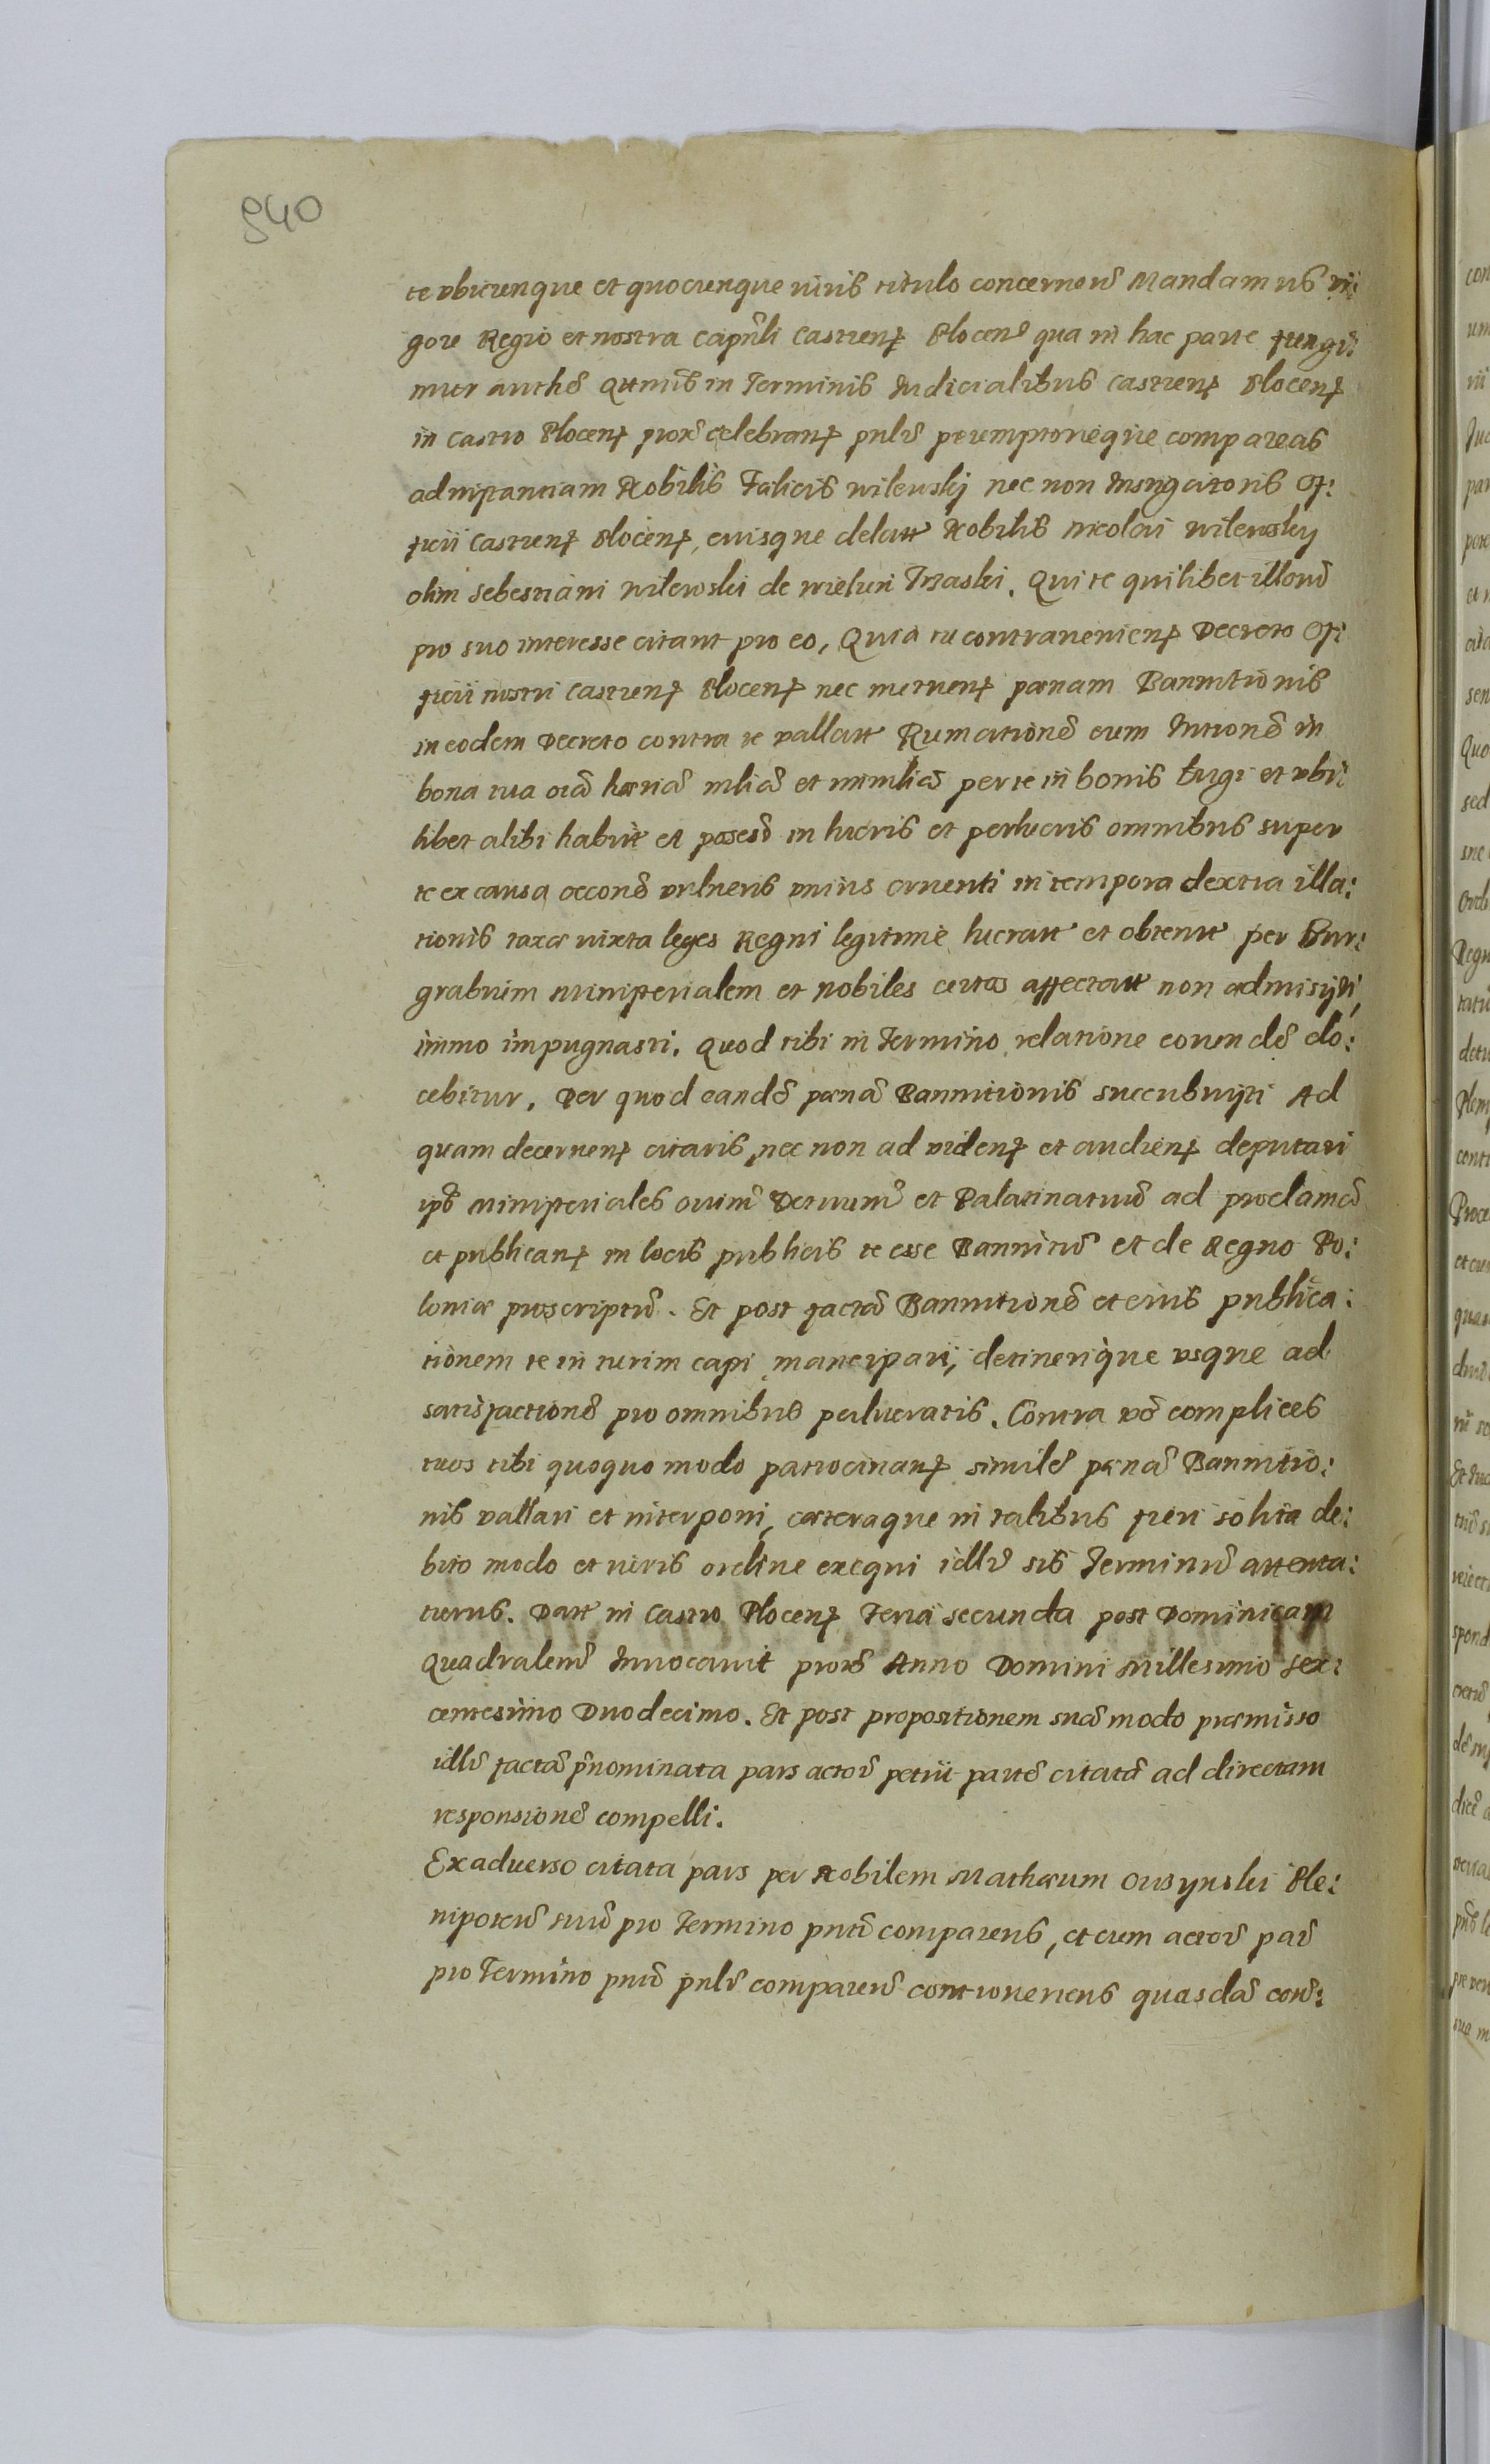 940
te vbicunque et quocunque iuris titulo concernen̄ Mandamus vi:
gore Regio et nostra Capn̄li Castren̄ Plocen̄ qua in hac parte fungi:
mur auth̄e Qtenus in Terminis Iudicialibus Castren̄ Plocen̄
in Castro Plocen̄ prox̄ celebran̄ pn̄lr̄ peremptorieque compareas
ad instantiam Nobilis Fælicis wilewskj nec non Instigatoris Of:
ficii Castren̄ Plocen̄, eiusque delatt Nobilis Nicolai wilewsky
olim Sebestiani wilewski de wielun Trzaski. Qui te quilibet illorū
pro suo interesse citant pro eo, Quia tu contraueniens Decreto Of:
ficii nostri Castren̄ Plocen̄ nec metuens pœnam Bannitionis
in eodem Decreto contra te vallatt Rumationē cum Intronē in
bona tua oīa hæria mlia et immlia per te in bonis Ługi et vbi:
libet alibi habitt et posess̄ in lucris et perlucris omnibus super
te ex causa occonē vulneris vnius cruenti in tempora dextra illa:
tionis taxæ iuxta leges Regni legitime lucratt et obtentt per Bur:
grabium ministerialem et nobiles certos affectatt non admisisti,
immo impugnasti. Quod tibi in Termino relatione eorundē do:
cebitur. Per quod eandē pœnā Bannitionis succubuisti Ad
quam decernen̄ citaris, nec non ad viden̄ et audien̄ deputari
ipōs ministeriales oium Terrarum et Palatinatuū ad proclamā
et publican̄ in locis publicis te esse Bannitū et de Regno Po:
loniæ proscriptū. Et post factā Bannitionē et eius publica:
tionem te in turim capi, mancipari, detinerique vsque ad
satisfactionē pro omnibus perlucratis. Contra vō complices
tuos tibi quoquo modo patrocinan̄ similē pœnā Bannitio:
nis vallari et interponi, cæteraque in talibus fieri solita de:
bito modo et iuris ordine exequi idlr̄ sis Terminū attenta:
turus. Datt in Castro Plocen̄ Feria secunda post Dominicam
Quadralem̄ Inuocauit prox̄ Anno Domini Millesimo Sex:
centesimo Duodecimo. Et post propositionem suā modo præmisso
idlr̄ factā p̄nominata pars actor̄ petiit partē citatā ad directam
responsionē compelli.
Ex aduerso citata pars per Nobilem Mathæum Orisynski Ple:
nipotem̄ suū pro Termino pn̄ti comparens, et cum actor̄ par̄
pro Termino pn̄ti pn̄lr̄ comparen̄ controuertens quasdā con̄: